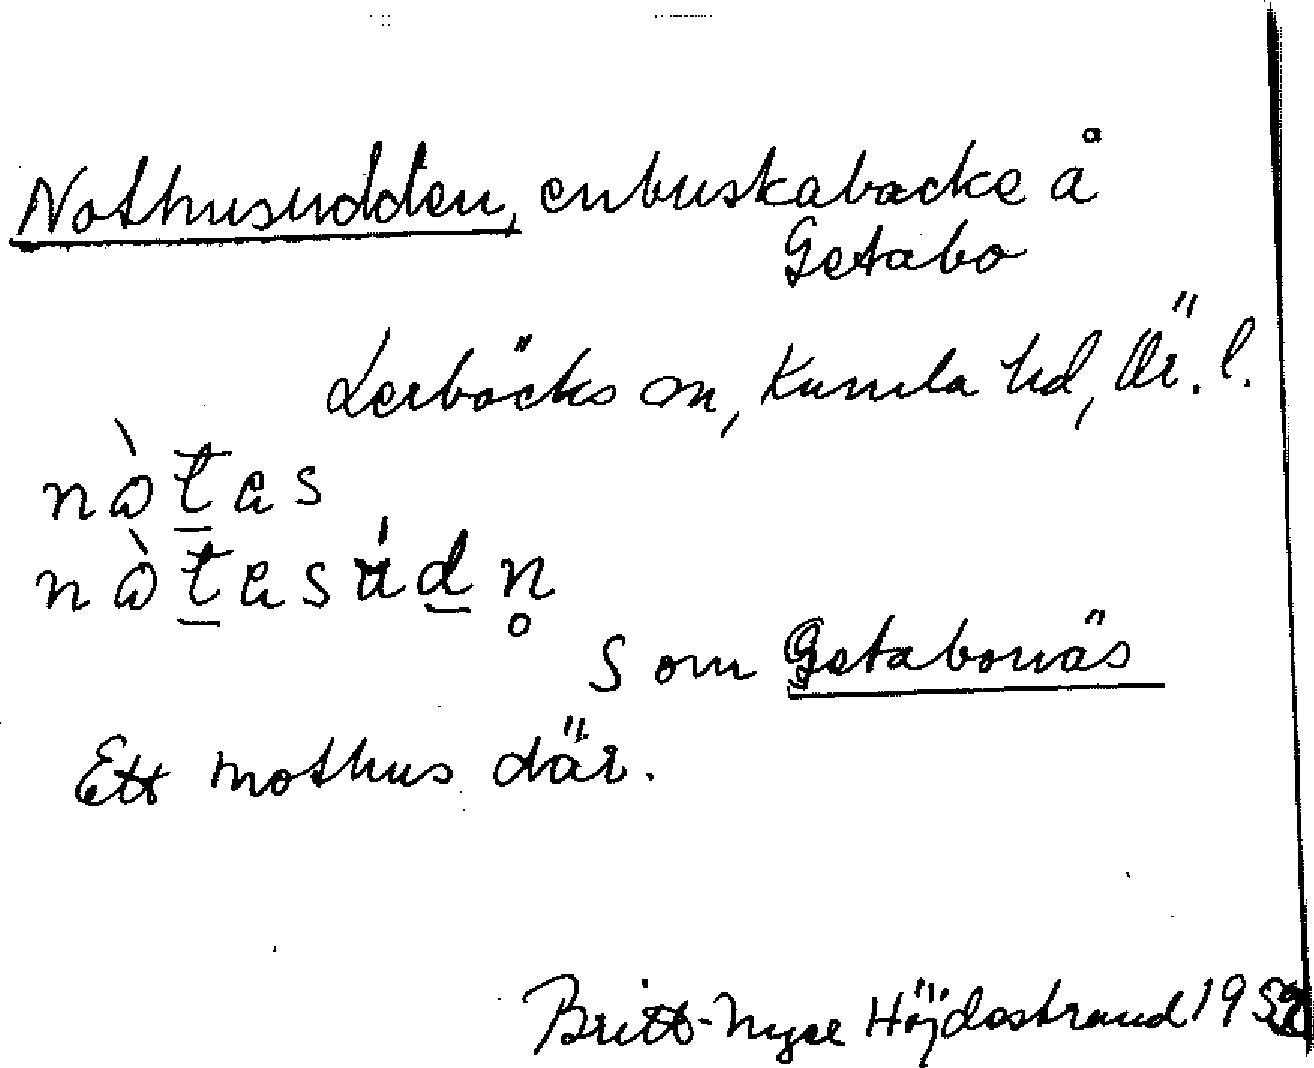 Nothusudden, enbuskabacke å
Getabo
Lerbäcks sn, Kumla hd, Ör. l.
nòt̲as
nòt̲asúd̲n̥
Som Getabonäs
Ett nothus där.
Britt-Nyse Höjdestrand 195